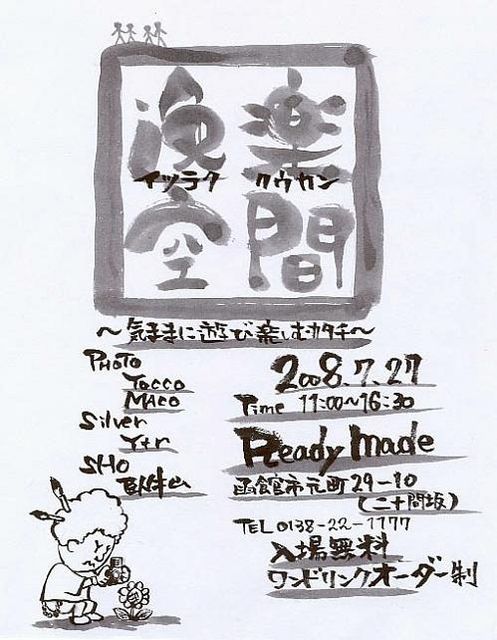 逸楽
イツラク クウカン
空間
～気ままに遊び楽しむカタチ～
PHOTO
Yocco
Maco
Silver
Y+r
SHO
臥牛山
2008.7.27
Time 11:00～16:30
Ready Made
函館市元町29-10
(二十間坂)
TEL 0138-22-1177
入場無料
ワンドリンクオーダー制